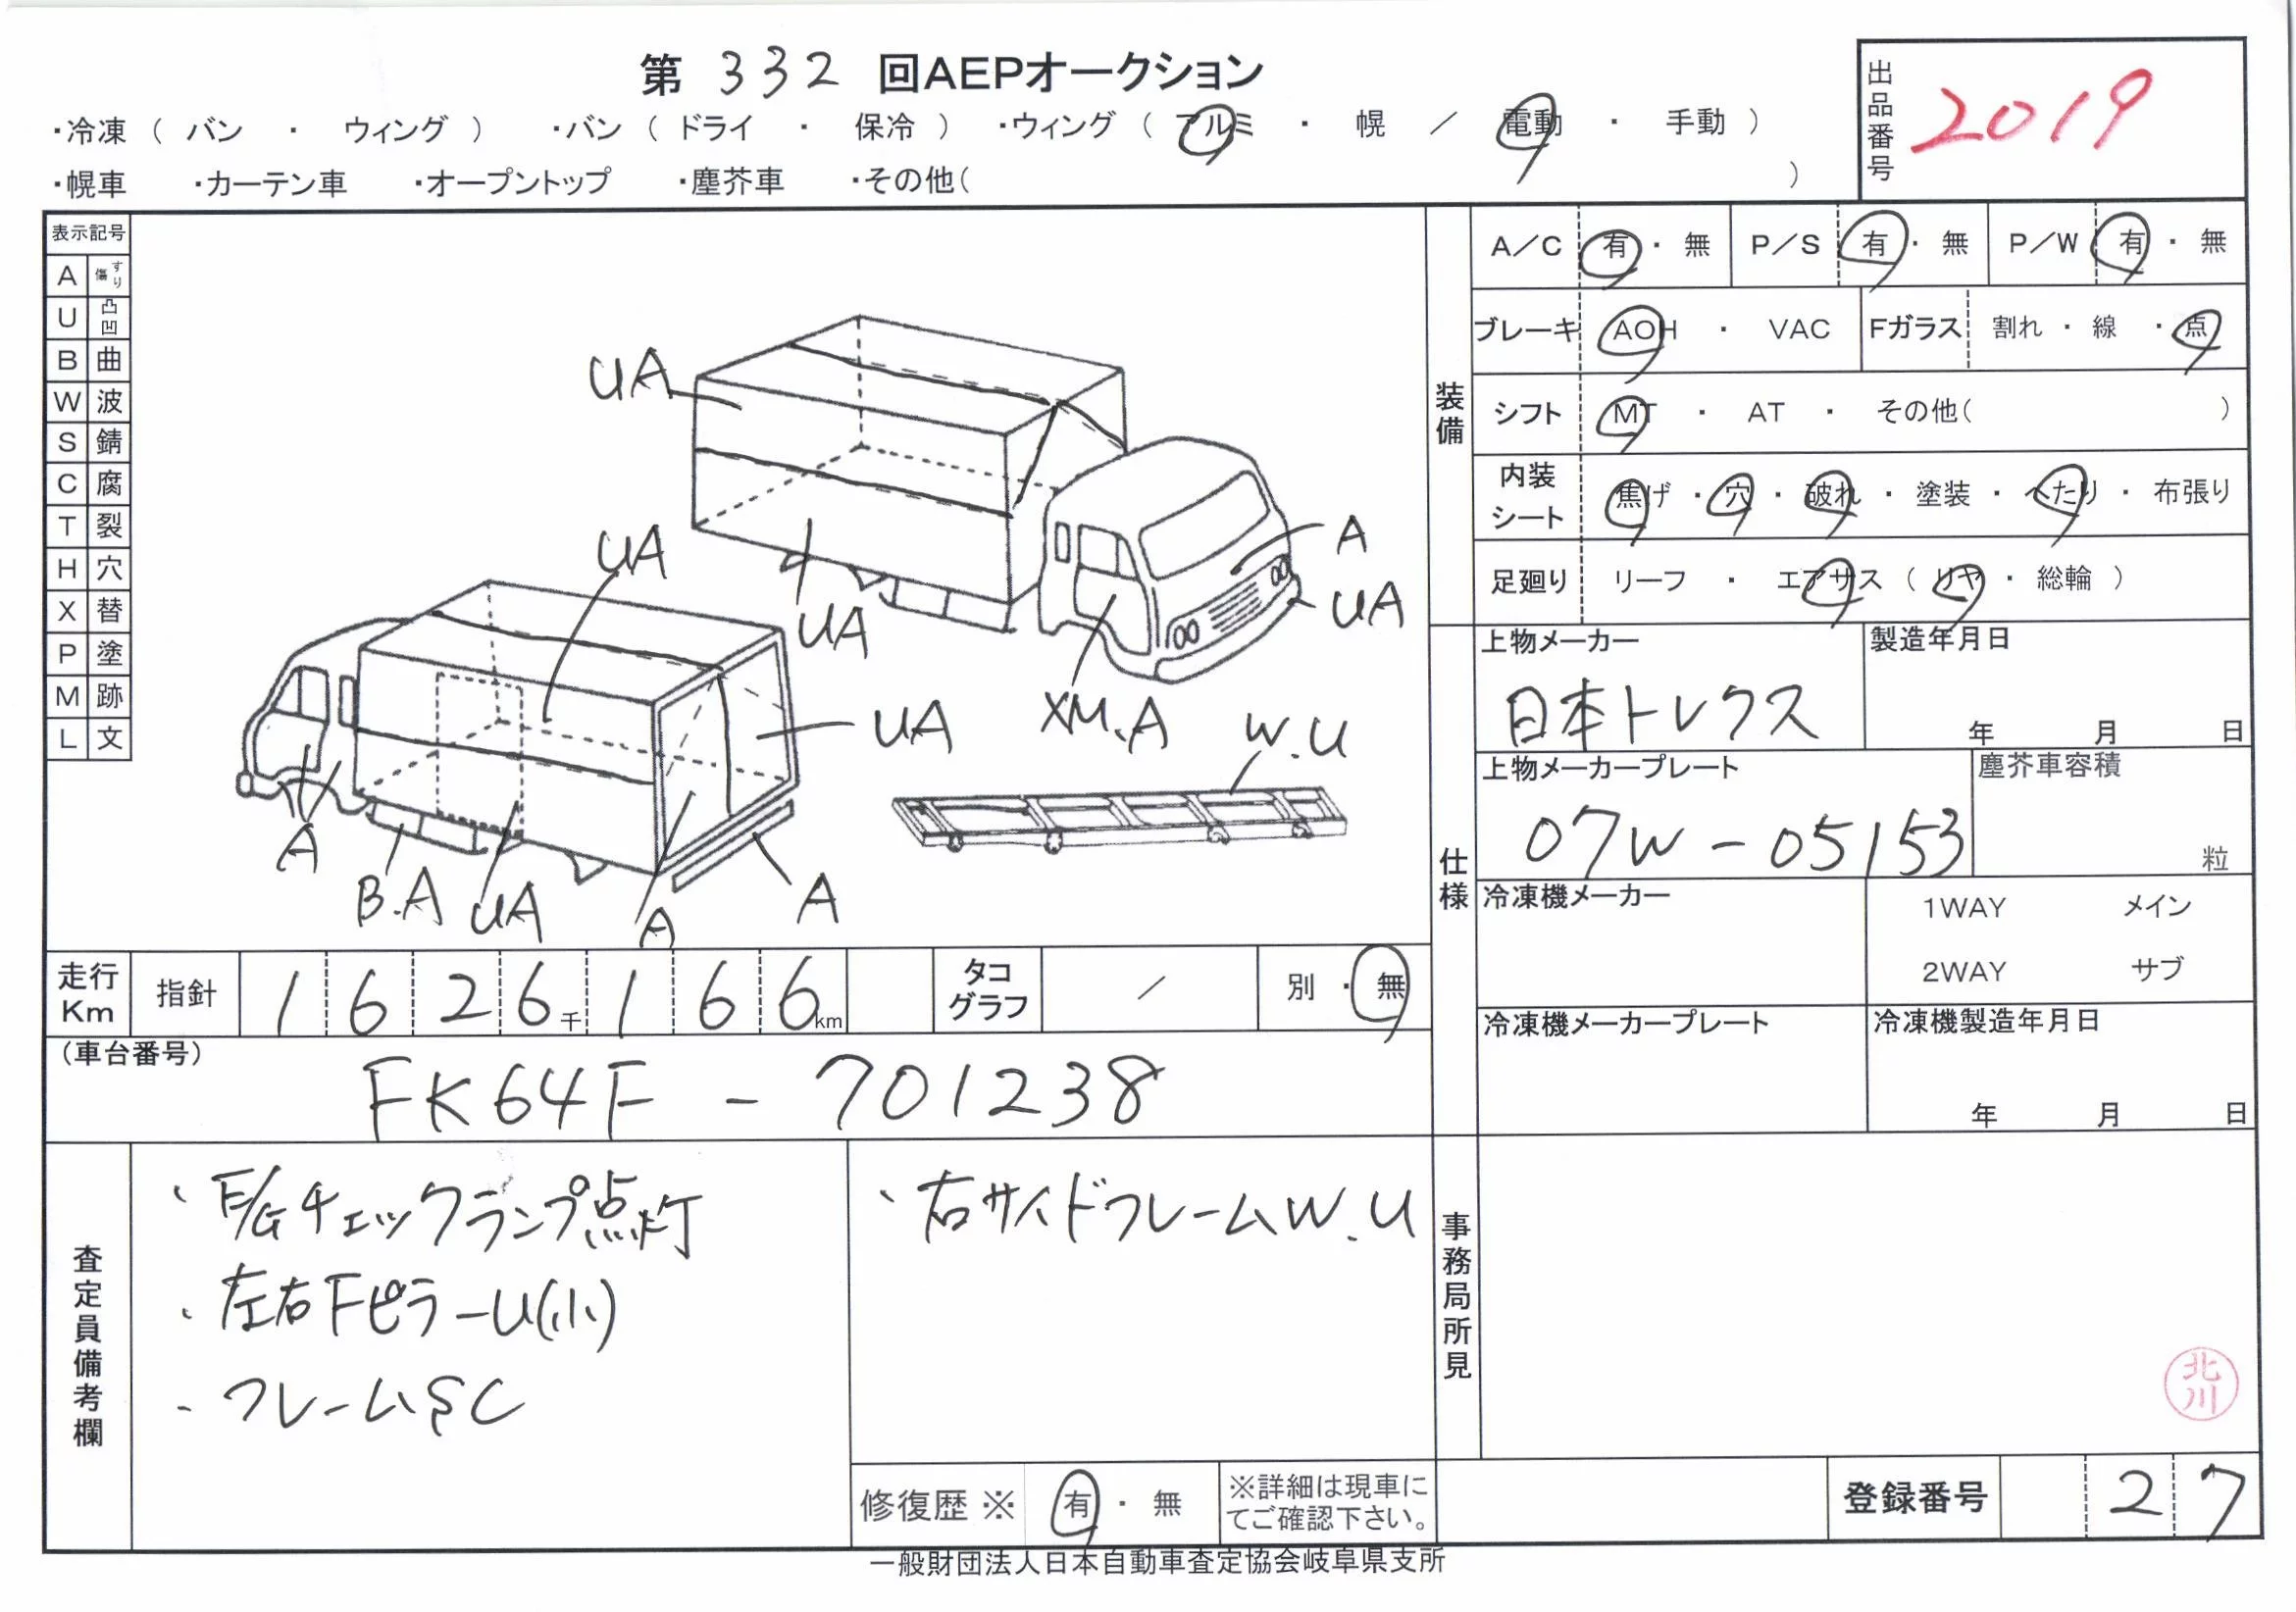 第 332 回AEPオークション
出品番号 2019
・冷凍（ バン ・ ウィング ） ・バン（ ドライ ・ 保冷 ） ・ウィング（ アルミ ・ 幌 ／ 電動 ・ 手動 ）
・幌車 ・カーテン車 ・オープントップ ・塵芥車 ・その他（ ）
表示記号
A すり傷
U 凸凹
B 曲
W 波
S 錆
C 腐
T 裂
H 穴
X 替
P 塗
M 跡
L 文
UA
UA
A
UA
UA
XM.A
UA
W.U
A
B.A
UA
A
A
装備
A／C 有 ・ 無 P／S 有 ・ 無 P／W 有 ・ 無
ブレーキ AOH ・ VAC Fガラス 割れ ・ 線 ・ 点
シフト MT ・ AT ・ その他（ ）
内装シート 焦げ ・ 穴 ・ 破れ ・ 塗装 ・ へたり ・ 布張り
足廻り リーフ ・ エアサス（ リヤ ・ 総輪 ）
仕様
上物メーカー 製造年月日
日本トレクス 年 月 日
上物メーカープレート 塵芥車容積
07W-05153 粒
冷凍機メーカー 1WAY メイン
2WAY サブ
冷凍機メーカープレート 冷凍機製造年月日
年 月 日
走行Km 指針 1626千166km タコグラフ ／ 別 ・ 無
（車台番号）
FK64F - 701238
査定員備考欄
・E/Gチェックランプ点灯
・左右FピラーU(小)
・フレームSC
・右サイドフレームW.U
修復歴 ※ 有 ・ 無 ※詳細は現車にてご確認下さい。
事務局所見
北川
登録番号 27
一般財団法人日本自動車査定協会岐阜県支所